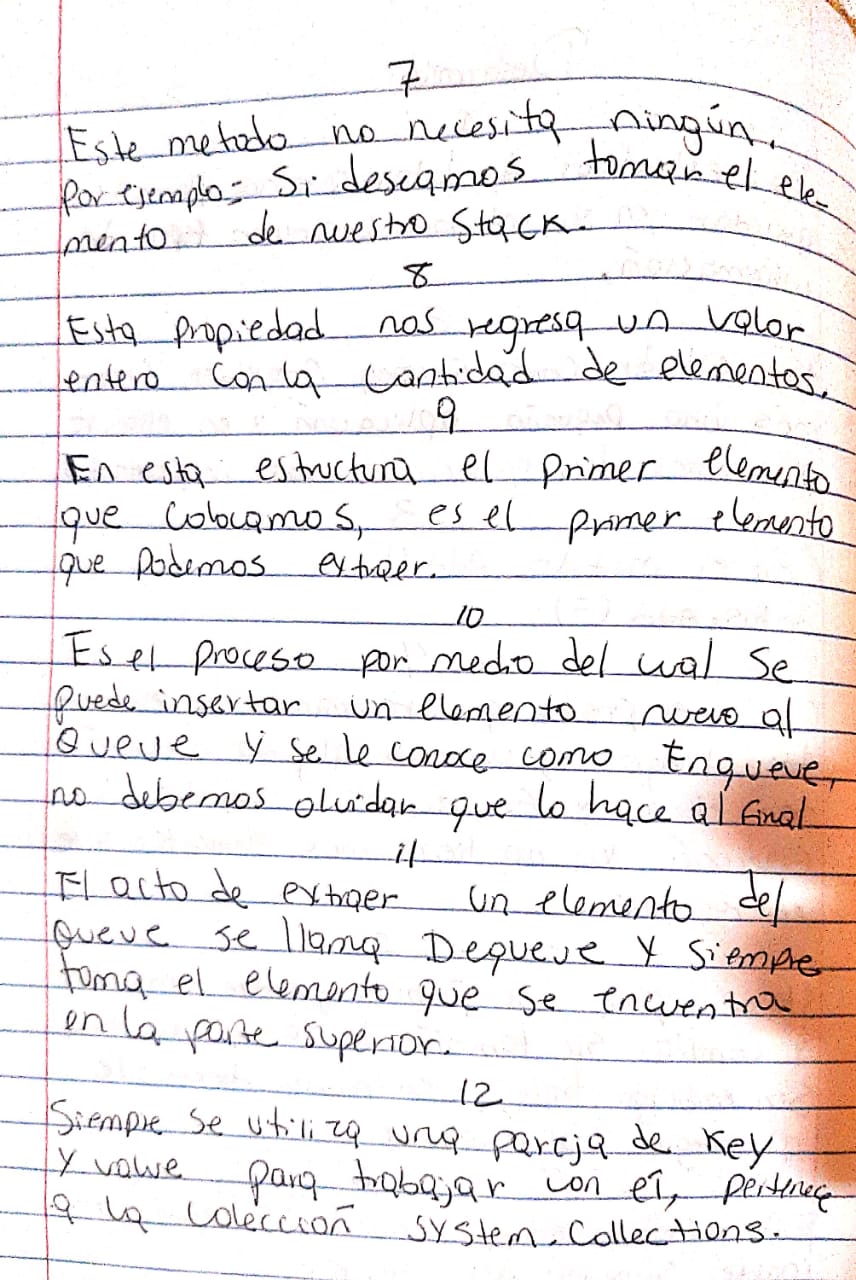 7
Este metodo no necesita ningún.
Por ejemplo: Si deseamos tomar el ele-
mento de nuestro Stack.
8
Esta propiedad nos regresa un valor
entero con la cantidad de elementos.
9
En esta estructura el primer elemento
que colocamos, es el primer elemento
que podemos extraer.
10
Es el proceso por medio del cual se
puede insertar un elemento nuevo al
Queue y se le conoce como Enqueue,
no debemos olvidar que lo hace al final
11
El acto de extraer un elemento del
Queue se llama Dequeue y siempre
toma el elemento que se encuentra
en la parte superior.
12
Siempre se utiliza una pareja de Key
y value para trabajar con él, pertenece
a la colección System.Collections.